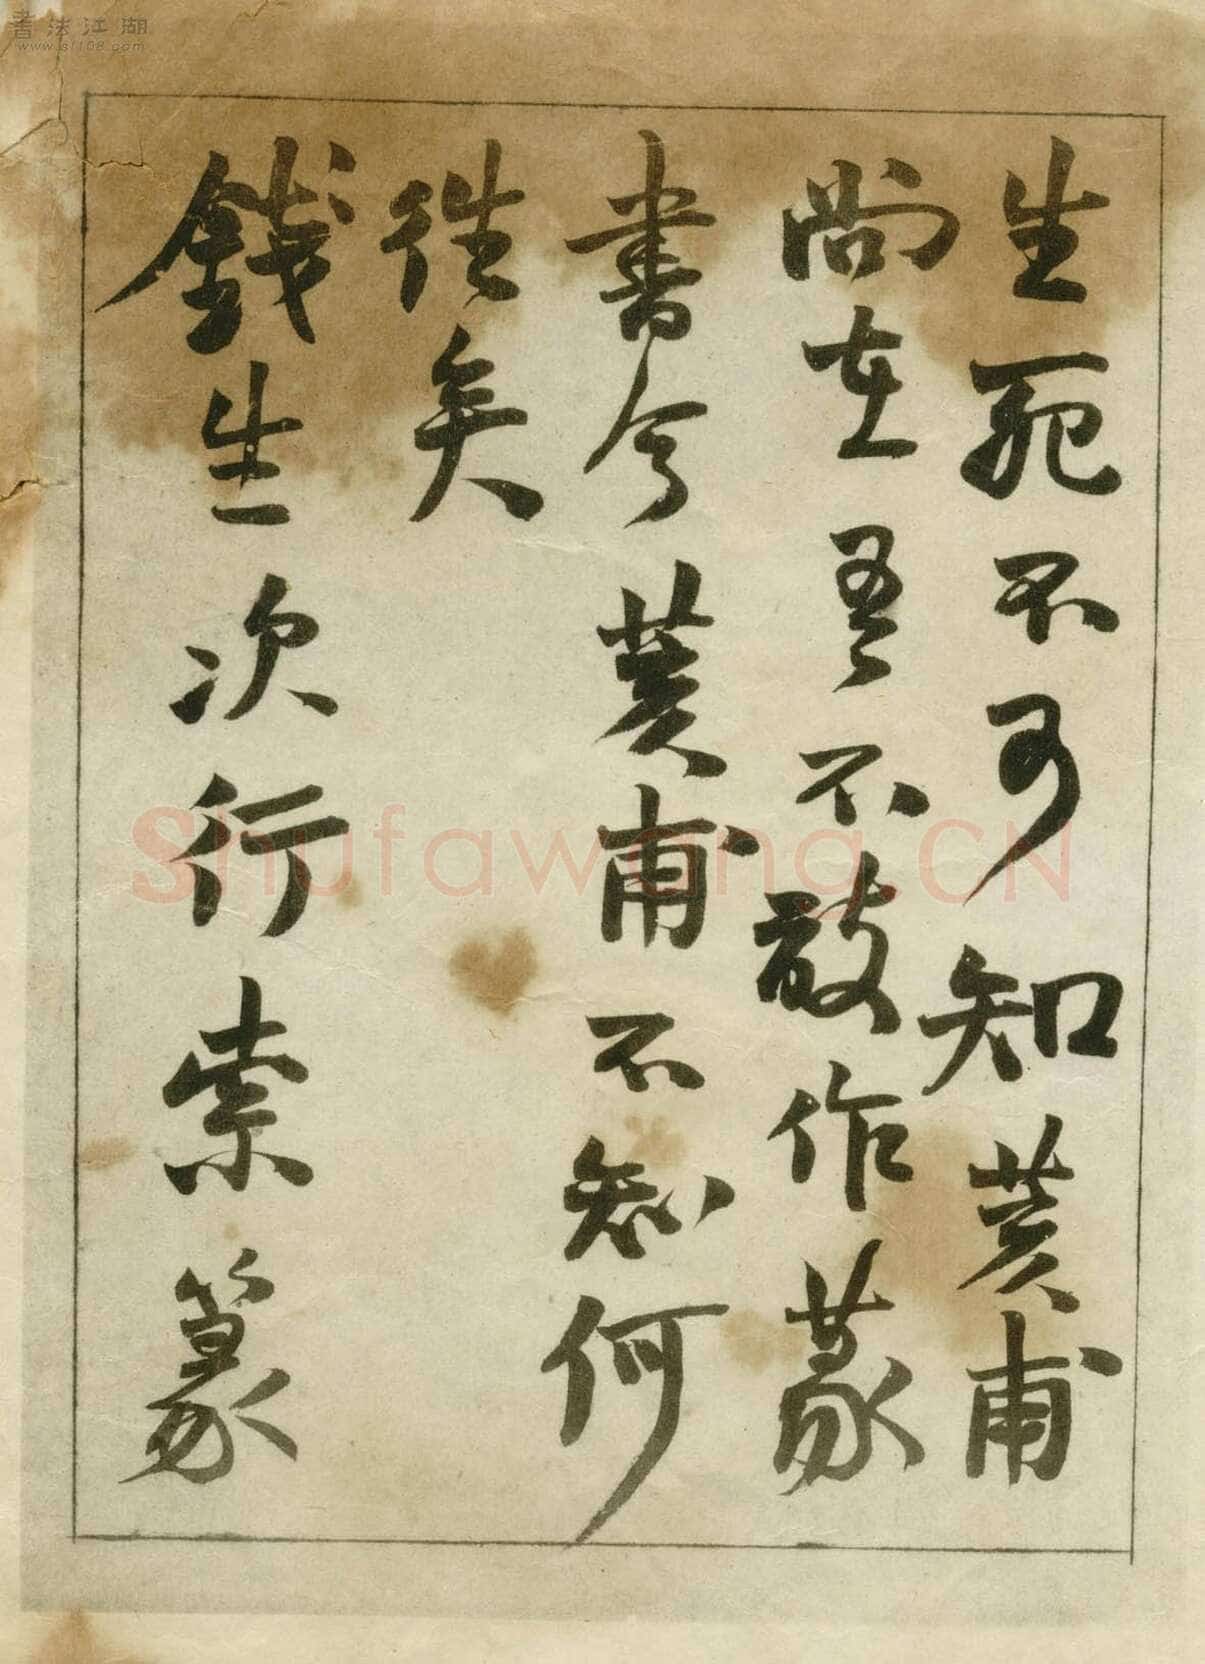 生死不可知荄甫
尚在吾不敢作篆
書今荄甫不知何
往矣
錢生次行索篆
書法江湖
www.sf108.com
Shufawang.CN